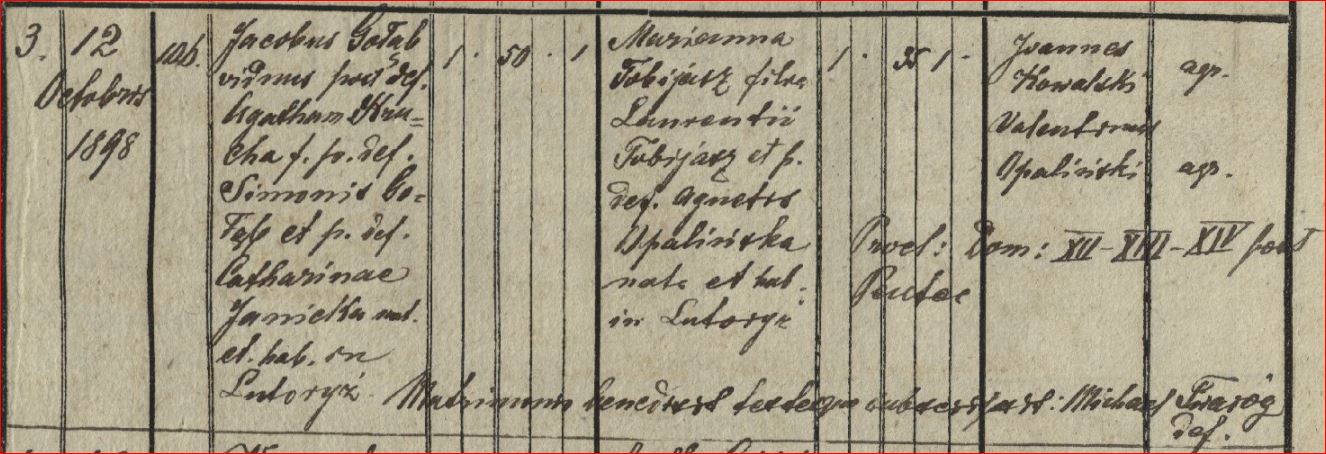 3. 12 Octobris 1898
106.
Jacobus Gołąb
viduus post def.
Agatham Kru-
cha f. p. def.
Simonis Go-
łąb et p. def.
Catharinae
Janicka nat.
et hab. in
Lutoryż
1 . 50 . 1
Marianna
Tobijasz filia
Laurentii
Tobijasz et p.
def. Agnetis
Opalińska
nata et hab.
in Lutoryż
1 . 35 1 .
Joannes
Kowalski agr.
Valentinus
Opaliński agr.
Procl: Dom: XII - XIII - XIV post
Pentec
Matrimonium benedixit testeque subscripsit: Michael Twaróg
def.